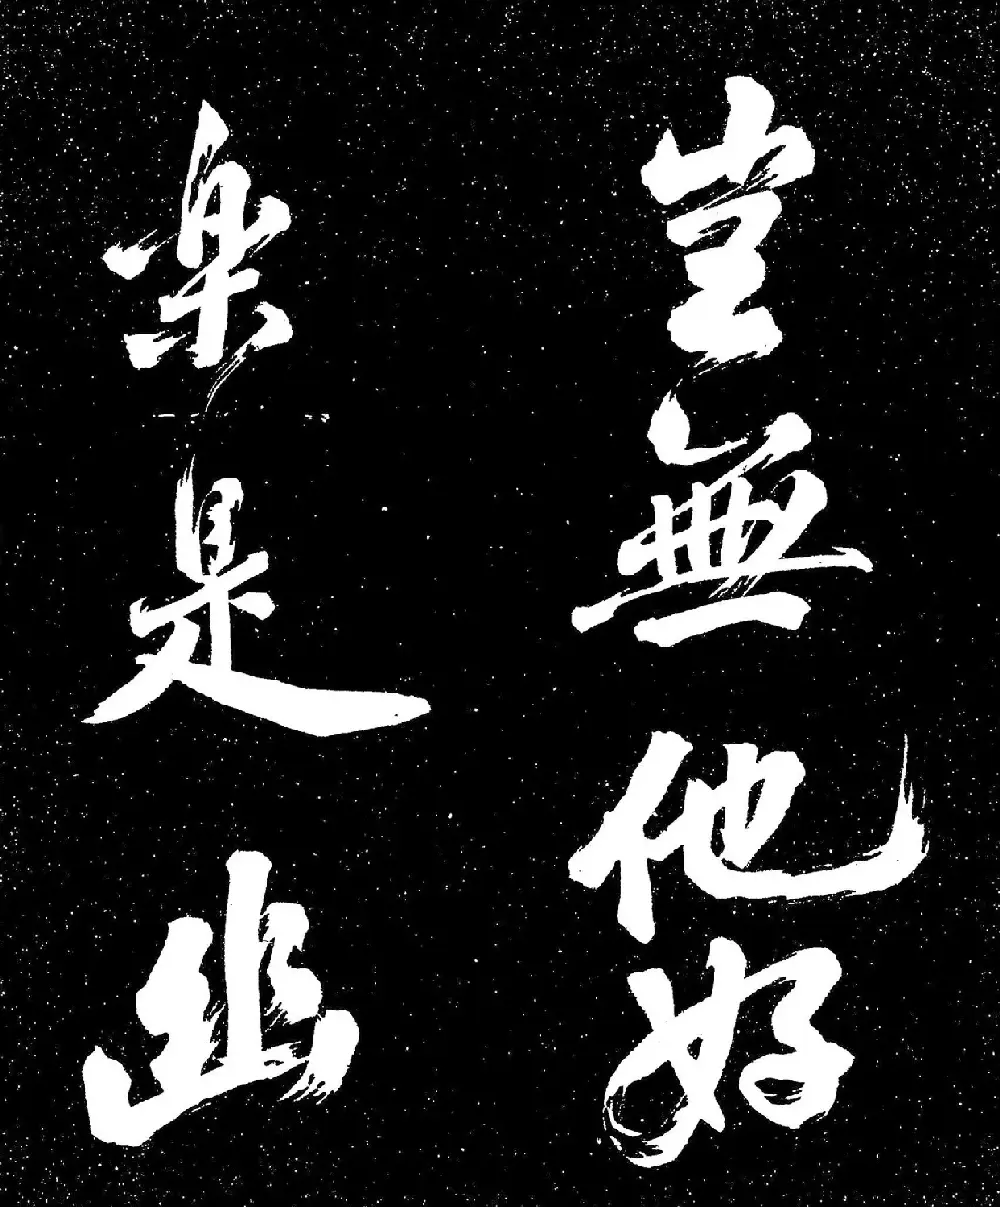 豈無他好
樂是幽